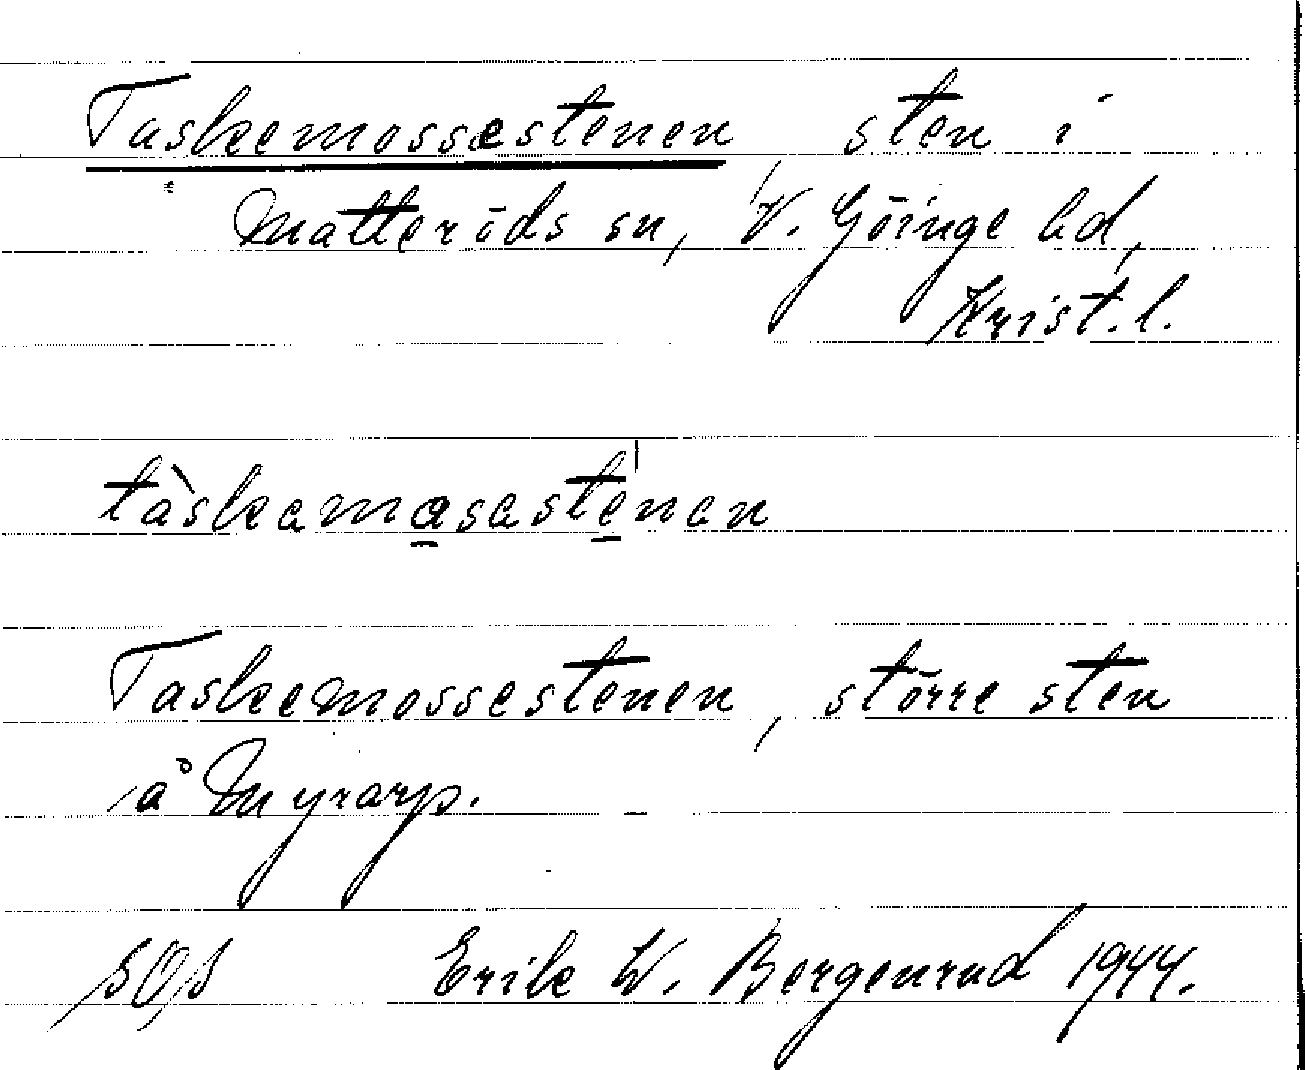 Taskemossestenen, sten i
Matteröds sn, V. Göinge hd,
Krist. l.
tàskamasastenan
Taskemossestenen, större sten
å Myrarp.
Erik W. Bergenrud 1944.